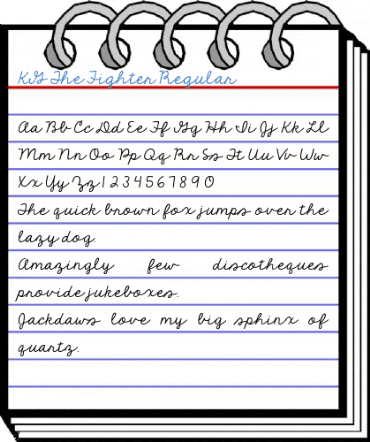 KG The Fighter Regular
Aa Bb Cc Dd Ee Ff Gg Hh Ii Jj Kk Ll
Mm Nn Oo Pp Qq Rr Ss Tt Uu Vv Ww
Xx Yy Zz 1 2 3 4 5 6 7 8 9 0
The quick brown fox jumps over the
lazy dog.
Amazingly few discotheques
provide jukeboxes.
Jackdaws love my big sphinx of
quartz.